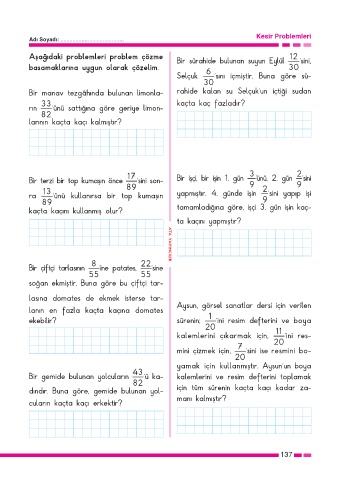 Adı Soyadı: ..............................
Kesir Problemleri
Aşağıdaki problemleri problem çözme
basamaklarına uygun olarak çözelim.
Bir manav tezgâhında bulunan limonla-
rın 33/82 'ünü sattığına göre geriye limon-
larının kaçta kaçı kalmıştır?
Bir terzi bir top kumaşın önce 17/89 'sini son-
ra 13/89 'ünü kullanırsa bir top kumaşın
kaçta kaçını kullanmış olur?
Bir çiftçi tarlasının 8/55 'ine patates, 22/55 'sine
soğan ekmiştir. Buna göre bu çiftçi tar-
lasına domates de ekmek isterse tar-
lanın en fazla kaçta kaçına domates
ekebilir?
Bir gemide bulunan yolcuların 43/82 'ü ka-
dındır. Buna göre, gemide bulunan yol-
cuların kaçta kaçı erkektir?
ATA YAYINCILIK
Bir sürahide bulunan suyun Eylül 12/30 'sini,
Selçuk 6/30 'sını içmiştir. Buna göre sü-
rahide kalan su Selçuk'un içtiği sudan
kaçta kaç fazladır?
Bir işçi, bir işin 1. gün 3/9 'ünü, 2. gün 2/9 'sini
yapmıştır. 4. günde işin 2/9 'sini yapıp işi
tamamladığına göre, işçi 3. gün işin kaç-
ta kaçını yapmıştır?
Aysun, görsel sanatlar dersi için verilen
sürenin; 1/20 'ini resim defterini ve boya
kalemlerini çıkarmak için, 11/20 'ini res-
mini çizmek için, 7/20 'sini ise resmini bo-
yamak için kullanmıştır. Aysun'un boya
kalemlerini ve resim defterini toplamak
için tüm sürenin kaçta kaçı kadar za-
manı kalmıştır?
137